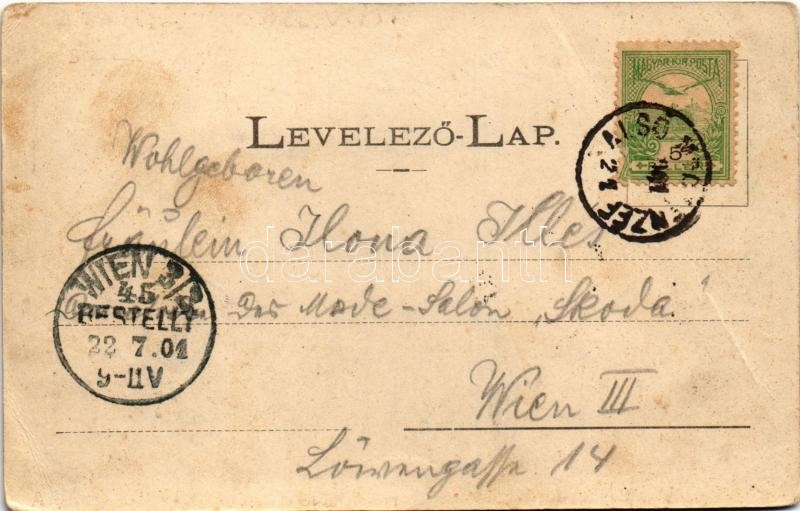 MAGYAR KIR. POSTA
ALSÓ
LEVELEZŐ-LAP.
Wohlgeboren
Fräulein Ilona Illes
Des Mode-Salon „Skoda"
Wien III
Löwengasse 14
WIEN 3/3
45
BESTELLT
22 7.01
9-11V
darabanth